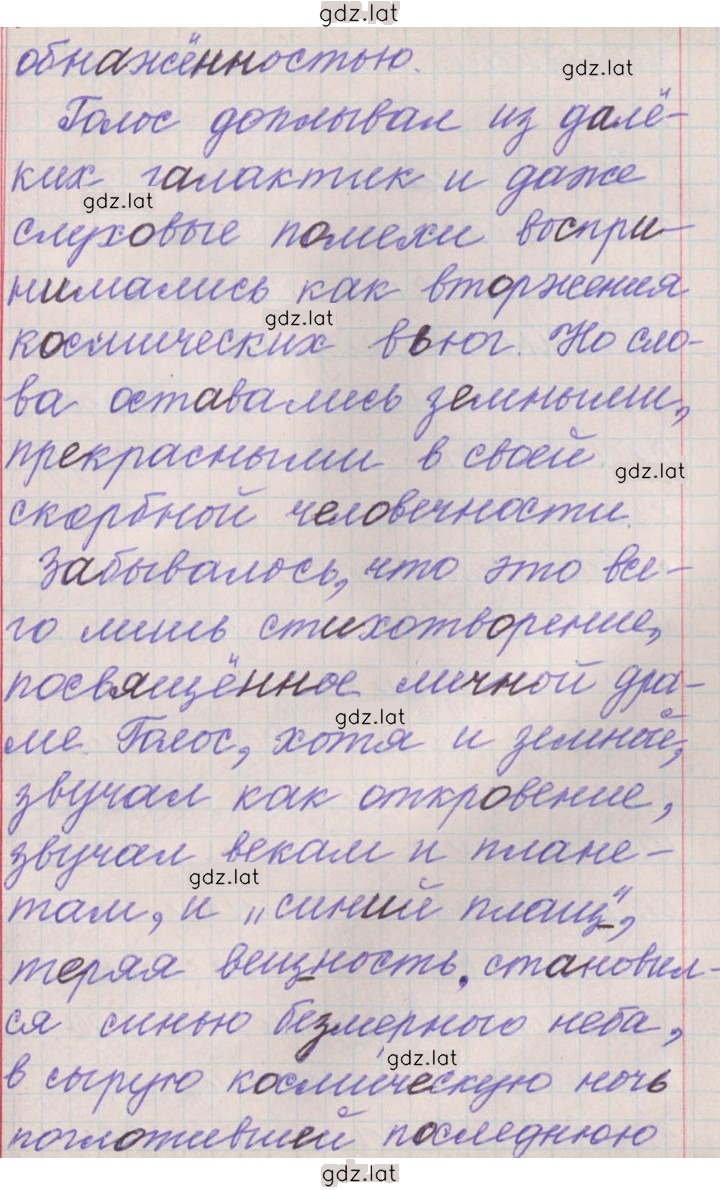 gdz.lat
обнажённостью.
gdz.lat
Голос доплывал из далё-
ких галактик и даже
gdz.lat
слуховые помехи воспри-
нимались как вторжения
gdz.lat
космических вьюг. Но сло-
ва оставались земными,
прекрасными в своей
gdz.lat
скорбной человечности.
Забывалось, что это все-
го лишь стихотворение,
посвящённое личной дра-
gdz.lat
ме. Голос, хотя и земной,
звучал как откровение,
звучал векам и плане-
gdz.lat
там, и „синий плащ“,
теряя вещность, становил-
ся синью безмерного неба,
gdz.lat
в сырую космическую ночь
поглотившей последнюю
gdz.lat